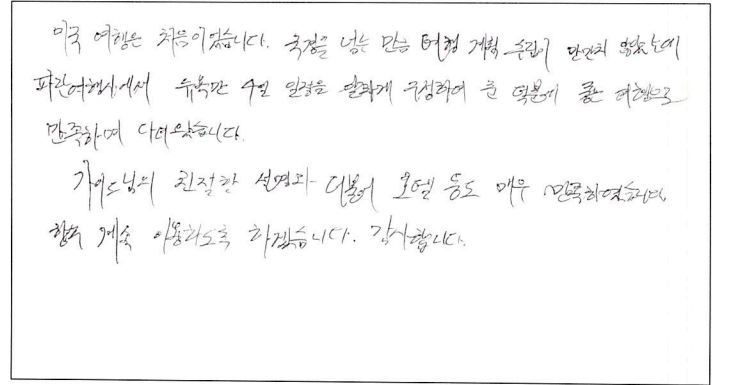 미국 여행은 처음이었습니다. 국경을 넘는 만큼 여행 계획 수립이 만만치 않았는데
파란여행사에서 뉴욕만 4일 일정을 알차게 구성하여 준 덕분에 좋은 여행으로
만족하며 다녀왔습니다.
가이드님의 친절한 설명과 더불어 호텔 등도 매우 만족하였습니다.
향후 계속 이용하도록 하겠습니다. 감사합니다.